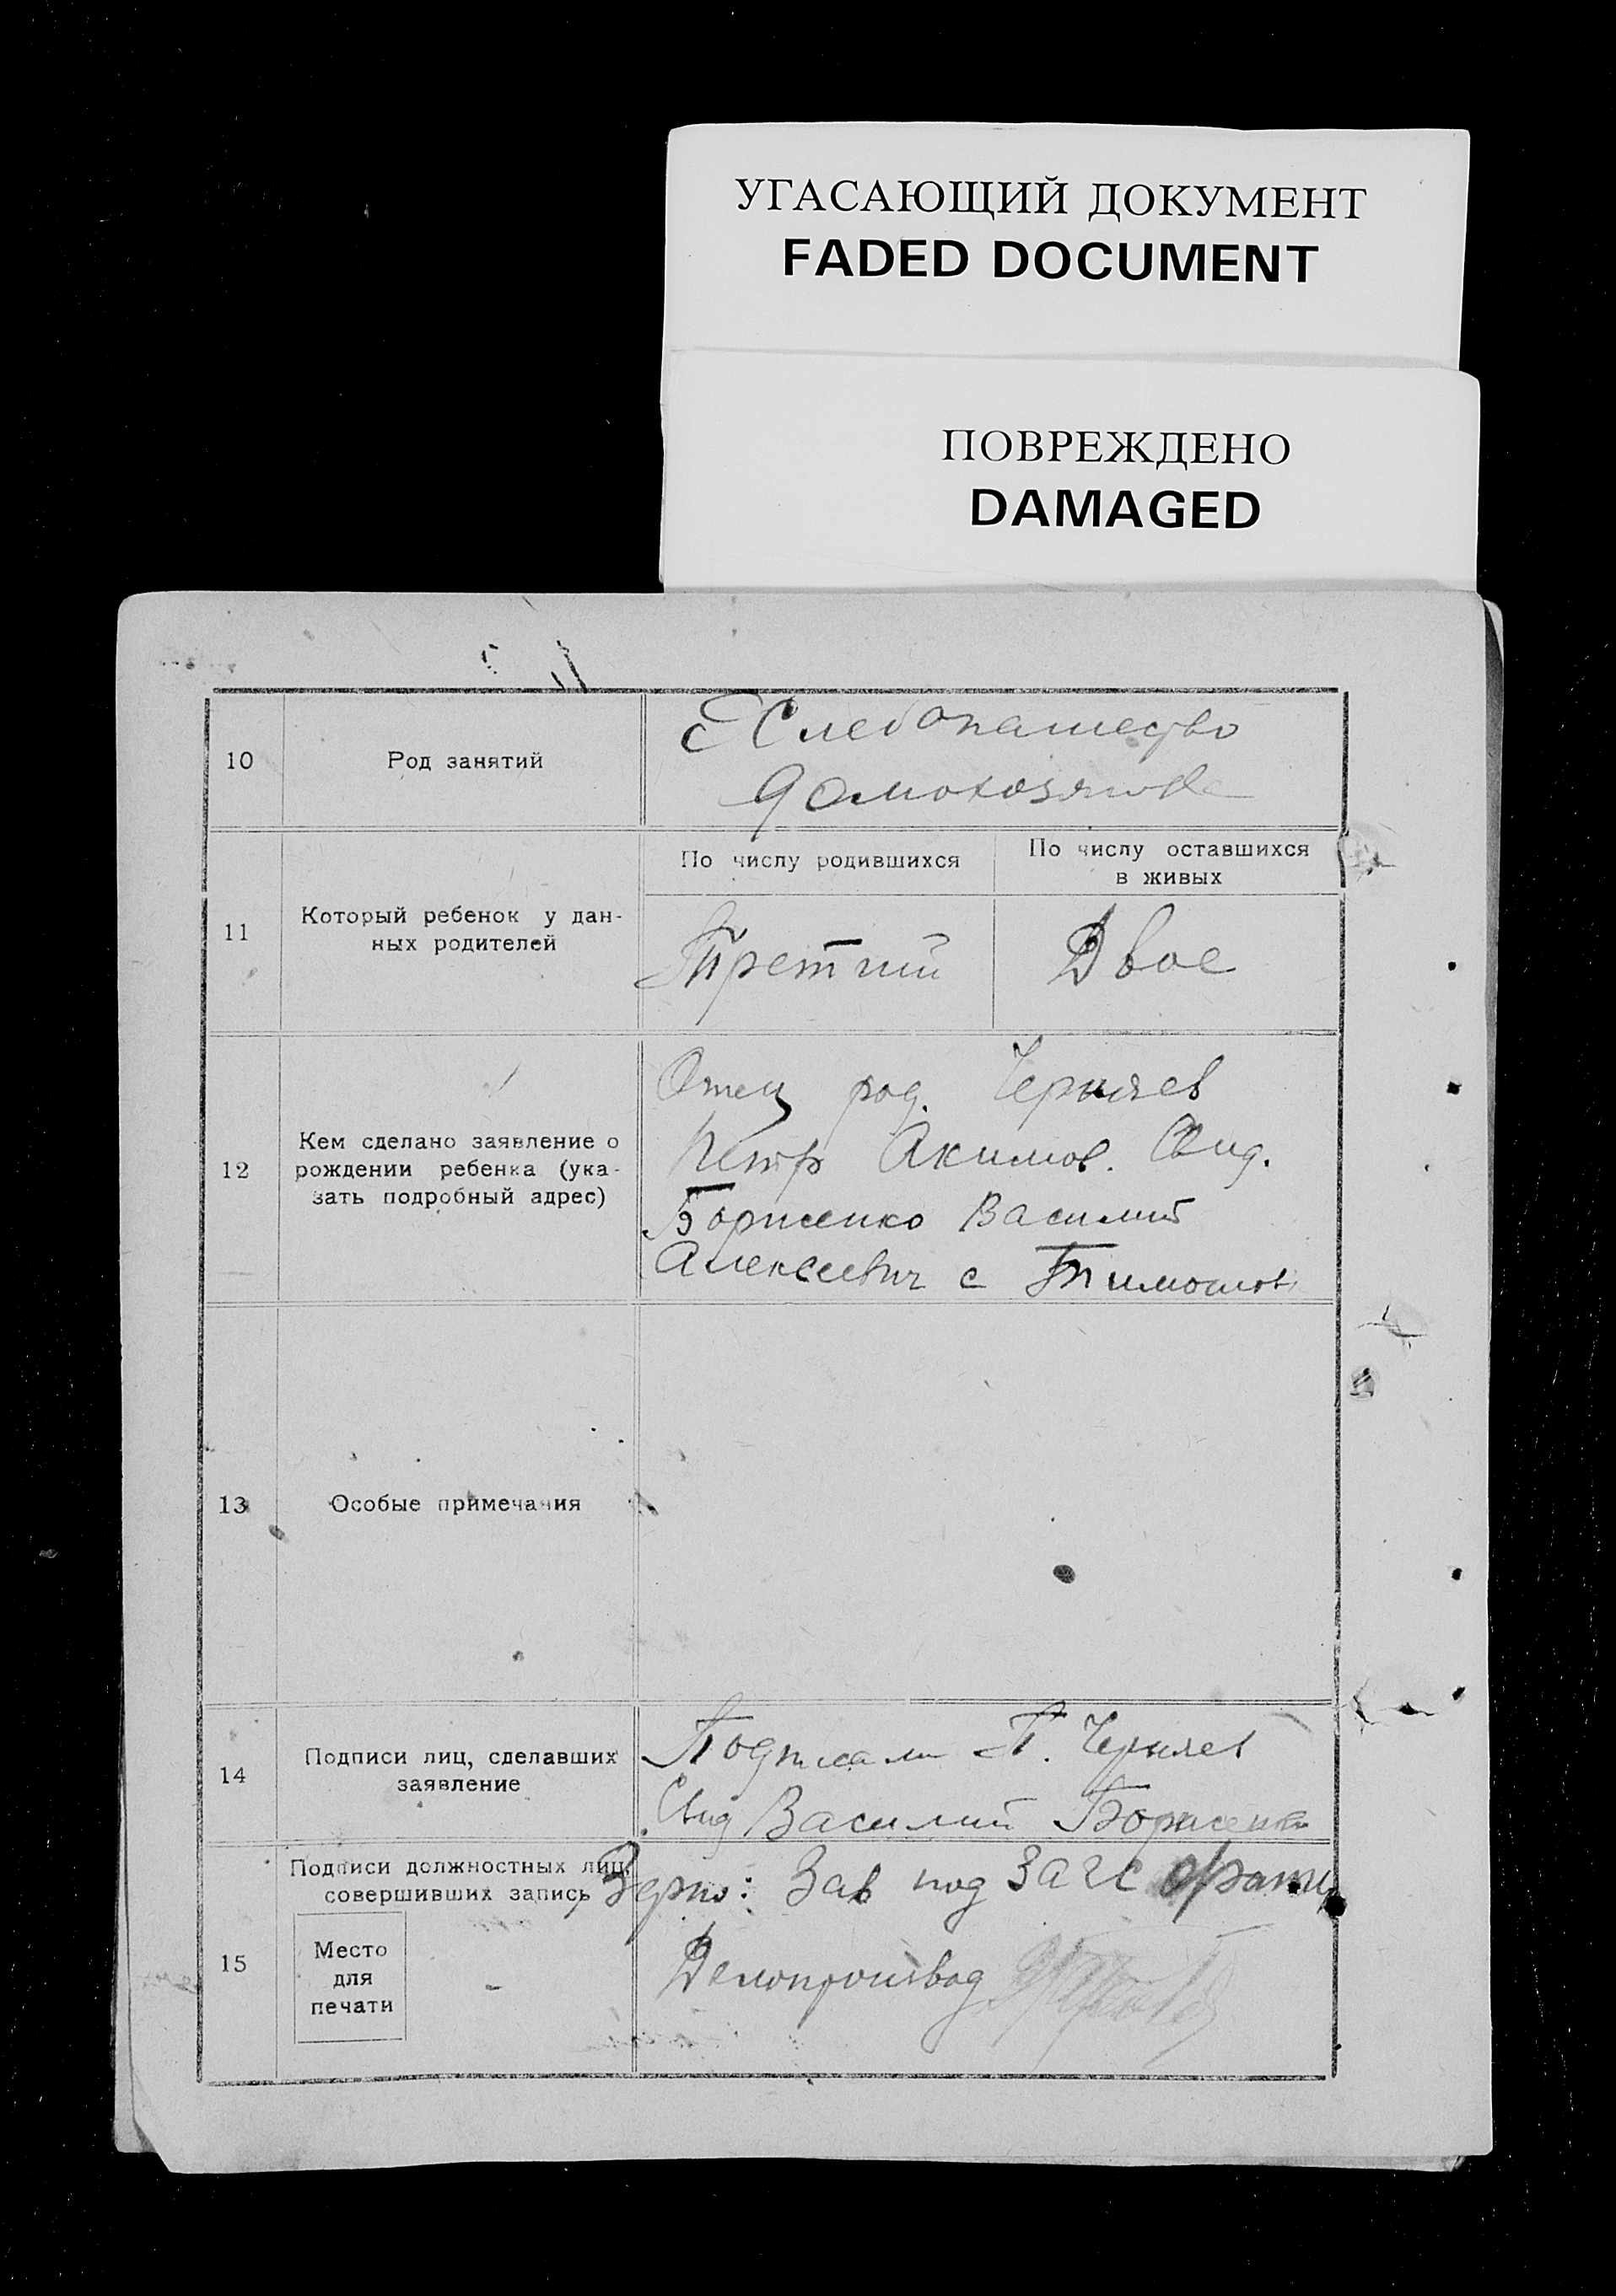 УГАСАЮЩИЙ ДОКУМЕНТ
FADED DOCUMENT
ПОВРЕЖДЕНО
DAMAGED
10
Род занятий
Хлебопашество
домохозяйка
11
Который ребенок у дан-
ных родителей
По числу родившихся
По числу оставшихся
в живых
Третий
Двое
12
Кем сделано заявление о
рождении ребенка (ука-
зать подробный адрес)
Отец род. Черняев
Петр Акимов. Свид.
Борисенко Василий
Алексеевич с
13
Особые примечания
14
Подписи лиц, сделавших
заявление
Подписали П. Черняев
Свид Василий Борисенко
15
Подписи должностных лиц,
совершивших запись
Место
для
печати
Верно: Зав под ЗАГС
Делопроизвод